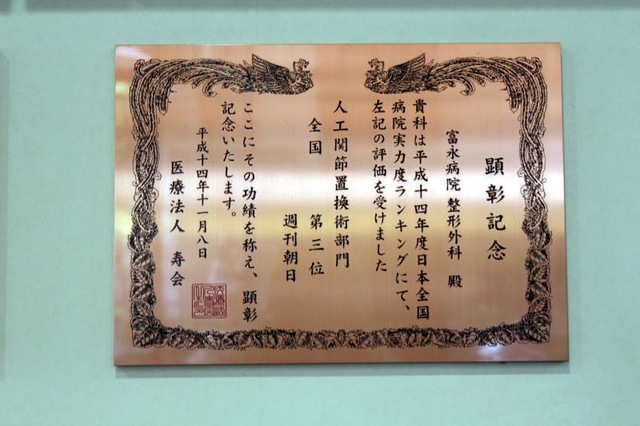 顕彰記念
富永病院 整形外科 殿
貴科は平成十四年度日本全国
病院実力度ランキングにて、
左記の評価を受けました
人工関節置換術部門
全国 第三位
週刊朝日
ここにその功績を称え、顕彰
記念いたします。
平成十四年十一月八日
医療法人 寿会